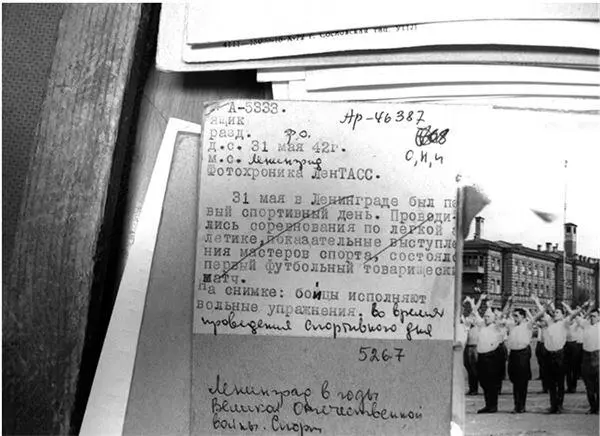 г. Сосновская тип.
А-5333.
Ар-46387
ящик
разд. Ф.О.
О, И, И
д.с. 31 мая 42г.
м.с. Ленинград
Фотохроника ЛенТАСС.
31 мая в Ленинграде был пе
вый спортивный день. Проводи-
лись соревнования по легкой а
летике, показательные выступле
ния мастеров спорта, состоялс
первый футбольный товарищески
матч.
На снимке: бойцы исполняют
вольные упражнения. Во время
проведения спортивного дня
5267
Ленинград в годы
Великой Отечественной
войны. Спорт